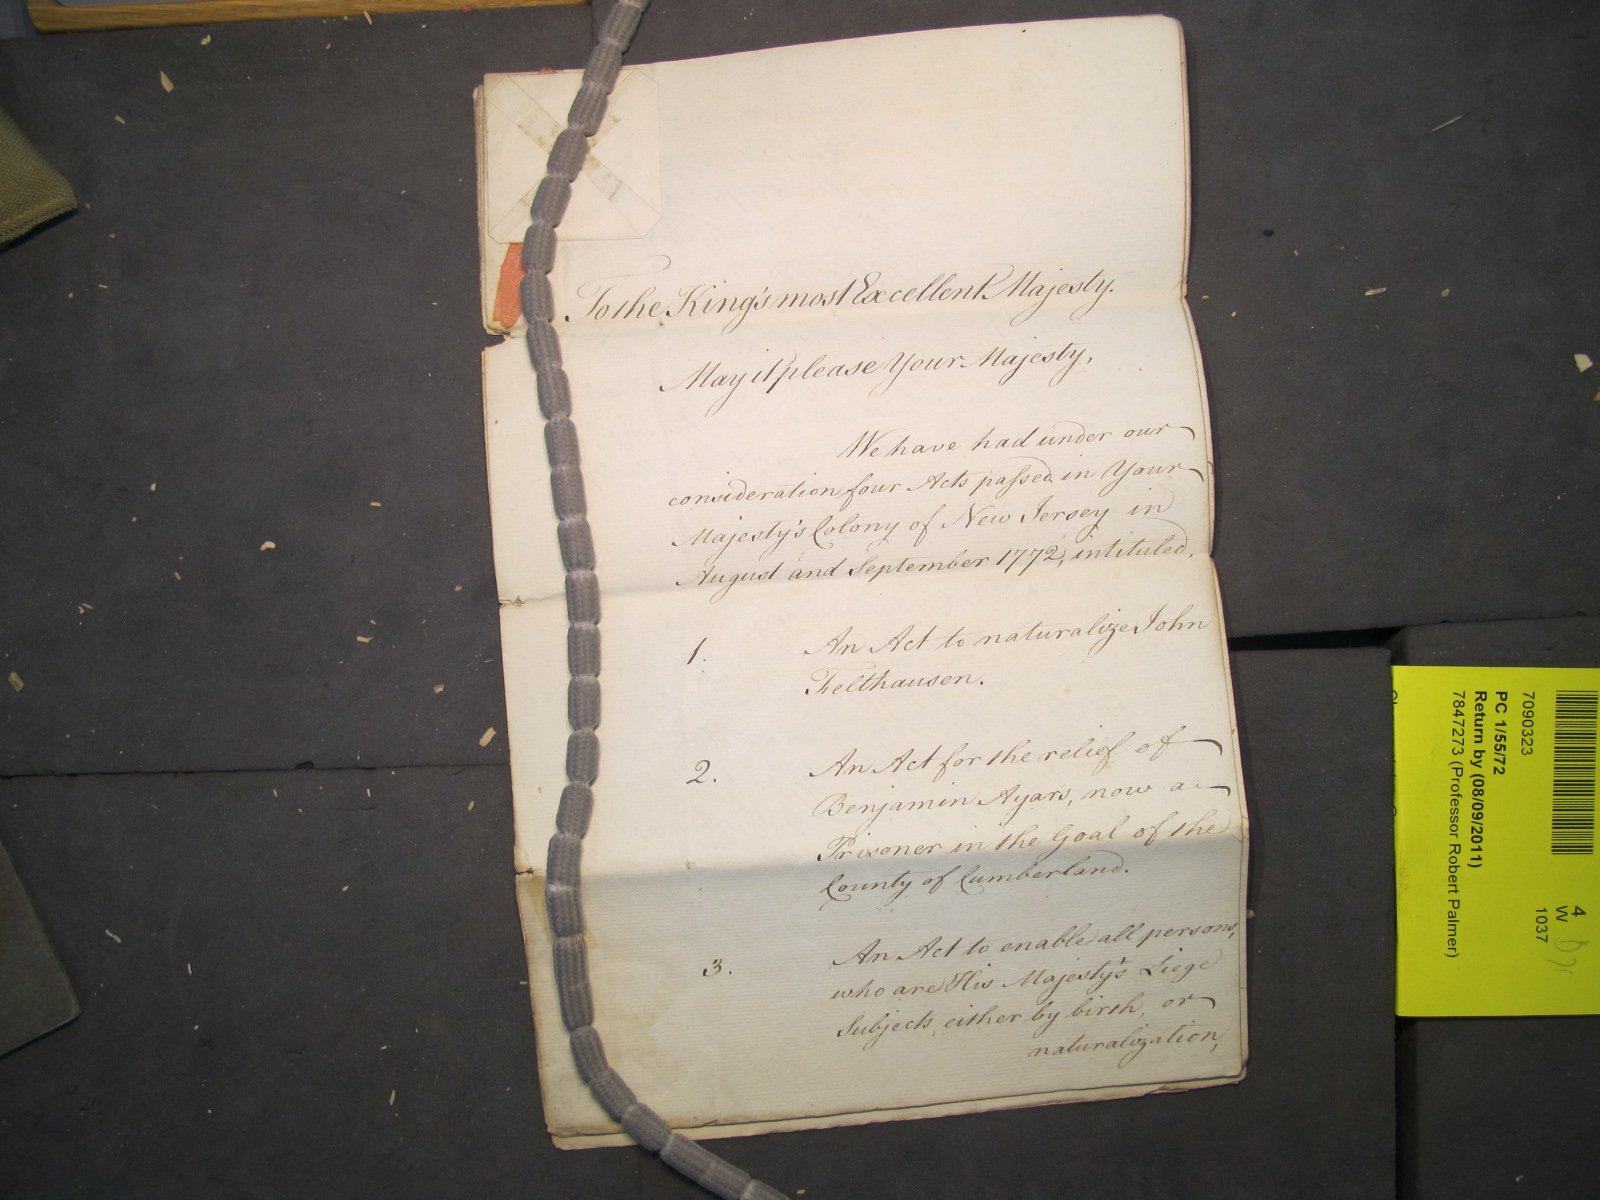 To the King's most Excellent Majesty.
May it please Your Majesty,
We have had under our
consideration four Acts passed in Your
Majesty's Colony of New Jersey in
August and September 1772, intituled,
1. An Act to naturalize John
Felthausen.
2. An Act for the relief of
Benjamin Ayars, now a
Prisoner in the Goal of the
County of Cumberland.
3. An Act to enable all persons,
who are His Majesty's Liege
Subjects, either by birth, or
naturalization,
7090323
PC 1/55/72
Return by (08/09/2011)
7847273 (Professor Robert Palmer)
4
W
1037